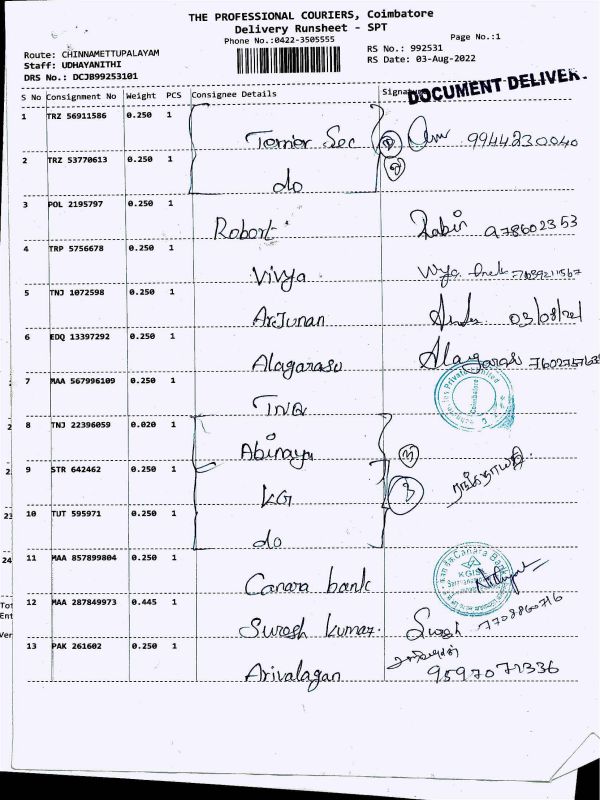 THE PROFESSIONAL COURIERS, Coimbatore
Delivery Runsheet - SPT
Phone No.:0422-3505555
Page No.:1
Route: CHINNAMETTUPALAYAM
RS No.: 992531
Staff: UDHAYANITHI
RS Date: 03-Aug-2022
DRS No.: DCJB99253101
DOCUMENT DELIVER.
S No Consignment No Weight PCS Consignee Details Signature
1 TRZ 56911586 0.250 1
Terrier Sec 9944230040
2 TRZ 53770613 0.250 1
do
3 POL 2195797 0.250 1
Robort Rabin 978602353
4 TRP 5756678 0.250 1
Vivya
5 TNJ 1072598 0.250 1
ArJunan 03/08/22
6 EDQ 13397292 0.250 1
Alagarasu Alagaras
7 MAA 567996109 0.250 1
Private Limited
Coimbatore
TNQ
8 TNJ 22396059 0.020 1
Abinaya
9 STR 642462 0.250 1
KG
10 TUT 595971 0.250 1
do
11 MAA 857899804 0.250 1
Canara Bank
KGIS
Canara bank
12 MAA 287849973 0.445 1
Suresh kumar. Suresh 7708860716
13 PAK 261602 0.250 1
Arivalagan 9597072336